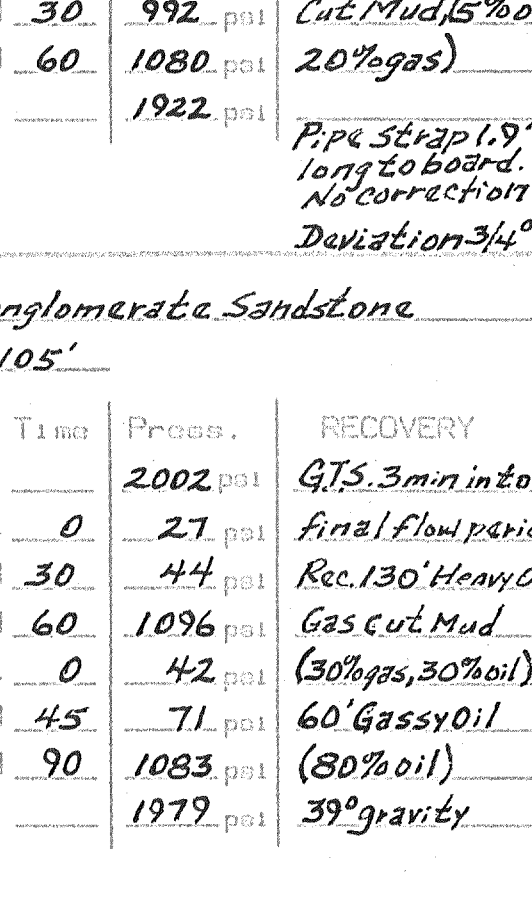 30 992 psi Cut Mud,(5%o
60 1080 psi 20%gas)
1922 psi
Pipe strap 1.9'
long to board.
No correction
Deviation 3/4°
nglomerate Sandstone
105'
Time Press. RECOVERY
2002 psi G.T.S. 3min into
0 27 psi final flow perio
30 44 psi Rec. 130' Heavy O
60 1096 psi Gas cut Mud
0 42 psi (30%gas,30%oil)
45 71 psi 60' Gassy Oil
90 1083 psi (80%oil)
1979 psi 39° gravity